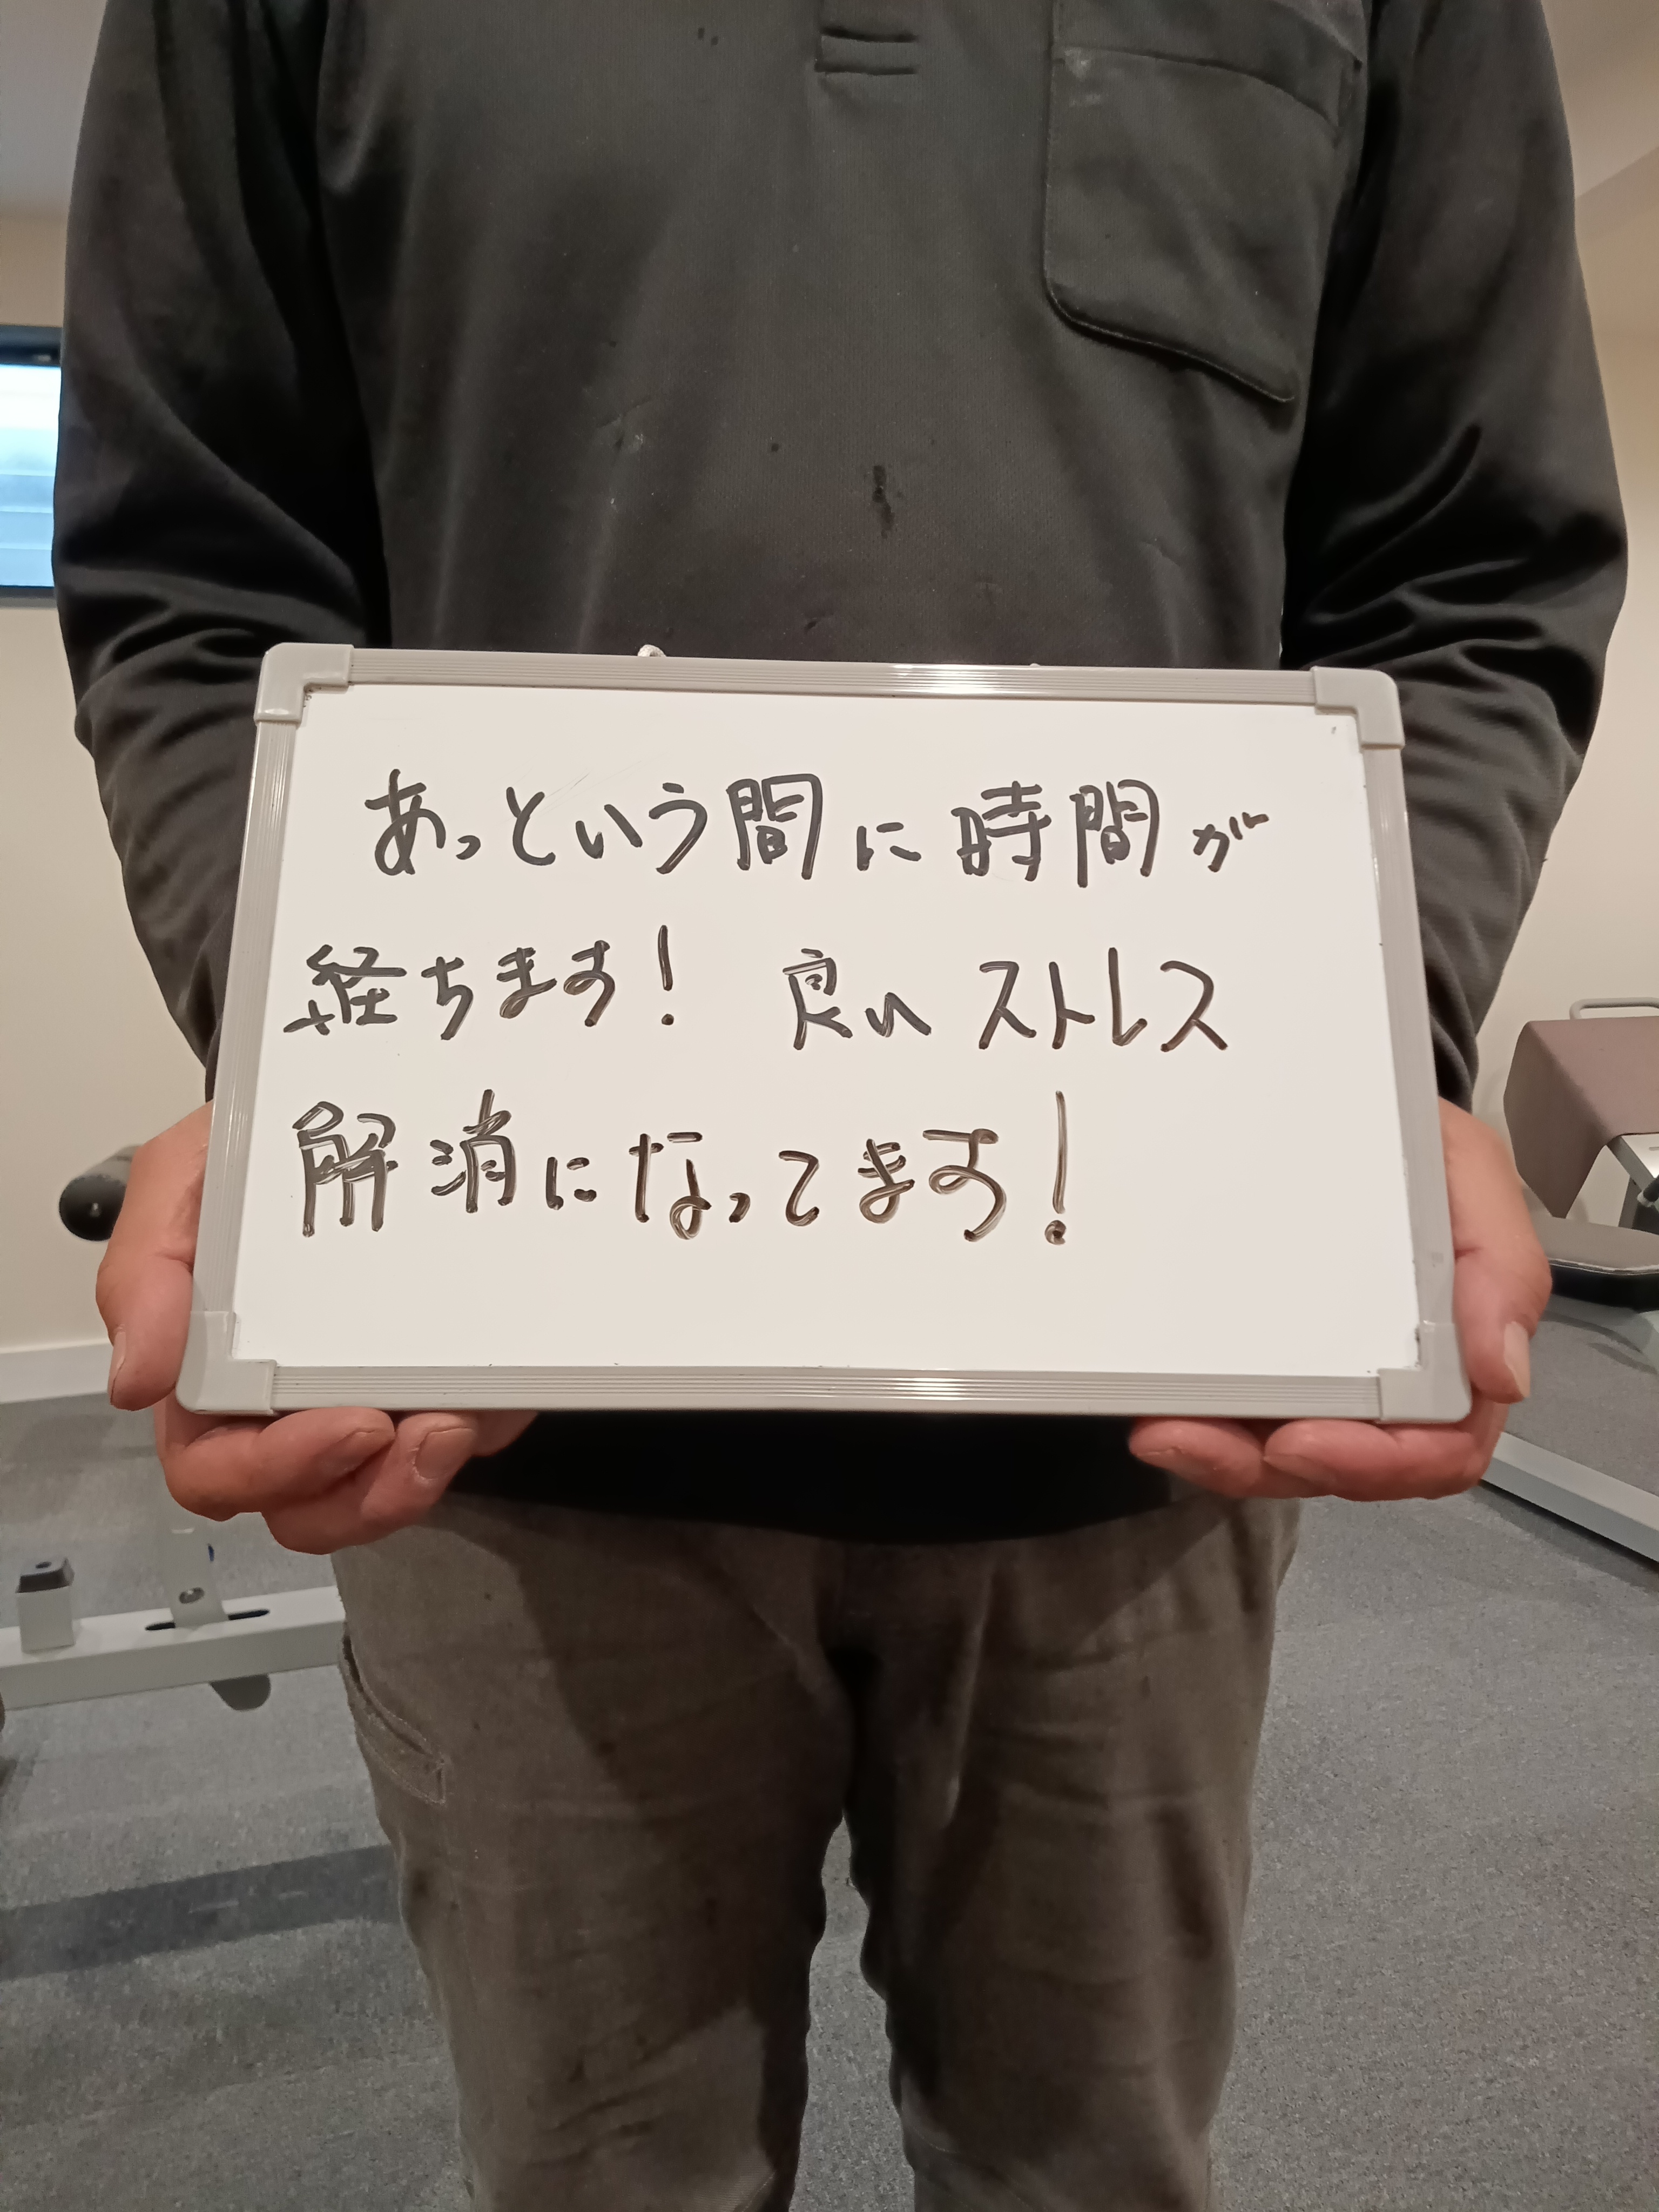 あっという間に時間が
経ちます! 良い ストレス
解消になってます!